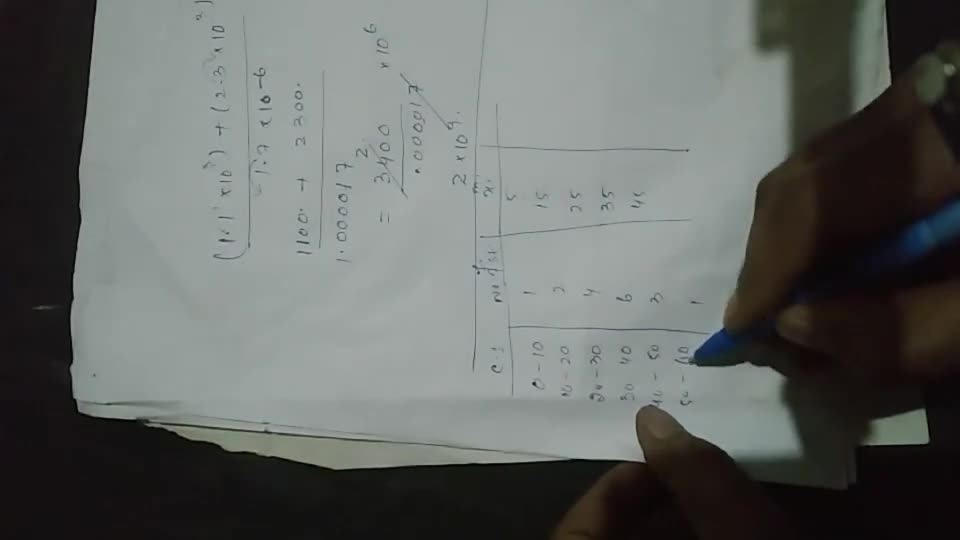 (1.1 × 10³) + (2.3 × 10²)
1.7 × 10-6
1100. + 2300.
1.000017
= 3400 2 × 10⁶
.000017
2 × 10⁹.
C.I No of st xi
0-10 1 5
10-20 2 15
20-30 4 25
30 40 6 35
40-50 3 45
50-60 1